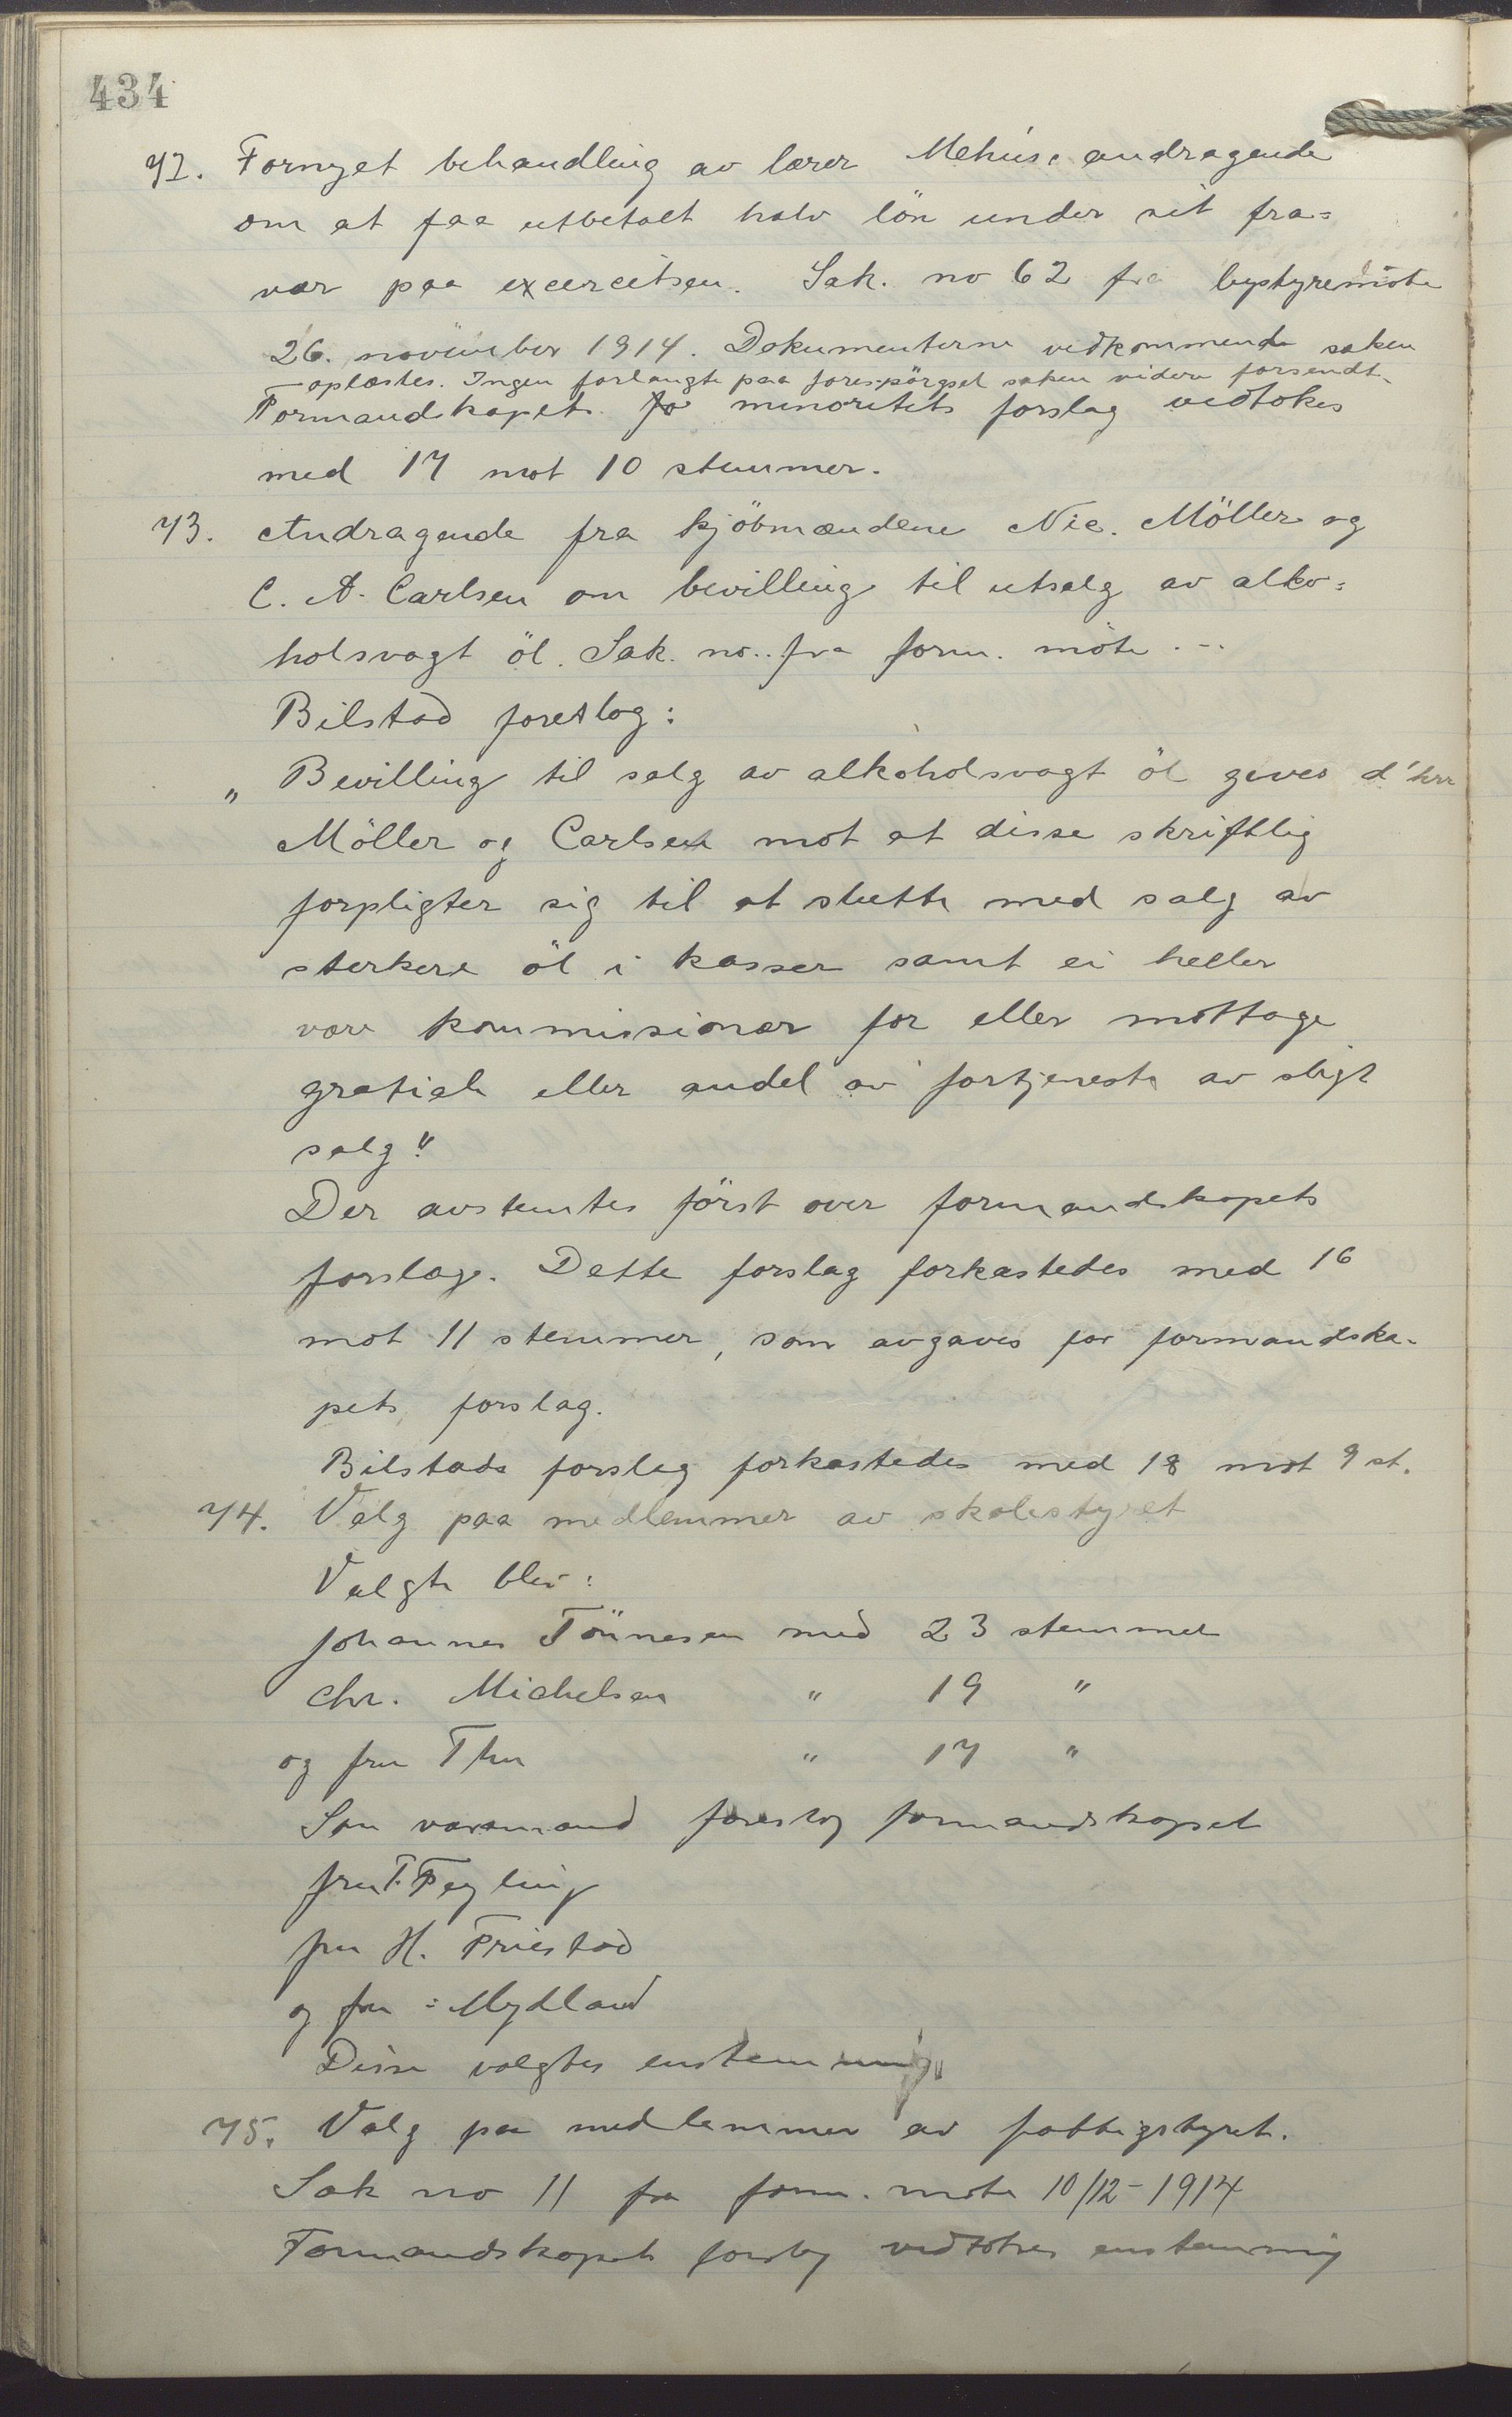 434
72. Fornyet behandling av lærer Mehus's andragende
om at faa utbetalt halv lön under sit fra=
vær paa excercitsen. Sak. no 62 fra bystyremöte
26. november 1914. Dokumenterne vedkommende saken
oplæstes. Ingen forlangte paa forespörgsel saken videre forsendt.
Formandskapets minoritets forslag vedtokes
med 17 mot 10 stemmer.
73. Andragende fra kjöbmændene Nic. Möller og
C. A. Carlsen om bevilling til utsalg av alko=
holsvagt öl. Sak. no.. fra form. möte ...
Bilstad foreslog:
„ Bevilling til salg av alkoholsvagt öl gives d'hrr
Möller og Carlsen mot at disse skriftlig
forpligter sig til at slutte med salg av
sterkere öl i kasser samt ei heller
være kommissionær for eller mottage
gratiale eller andel av fortjeneste av sligt
salg"
Der avstemtes först over formandskapets
forslag. Dette forslag forkastedes med 16
mot 11 stemmer, som avgaves for formandska-
pets forslag.
Bilstads forslag forkastedes med 18 mot 9 st.
74. Valg paa medlemmer av skolestyret
Valgte blev:
Johannes Tönnesen med 23 stemmer
Chr. Michelsen " 19 "
og fru Thu " 17 "
Som varamand foreslog formandskapet
fru T. Feyling
fru H. Friestad
og fru Mydland
Disse valgtes enstemmig
75. Valg paa medlemmer av fattigstyret.
Sak no 11 fra form. möte 10/12-1914
Formandskapets forslag vedtokes enstemmig